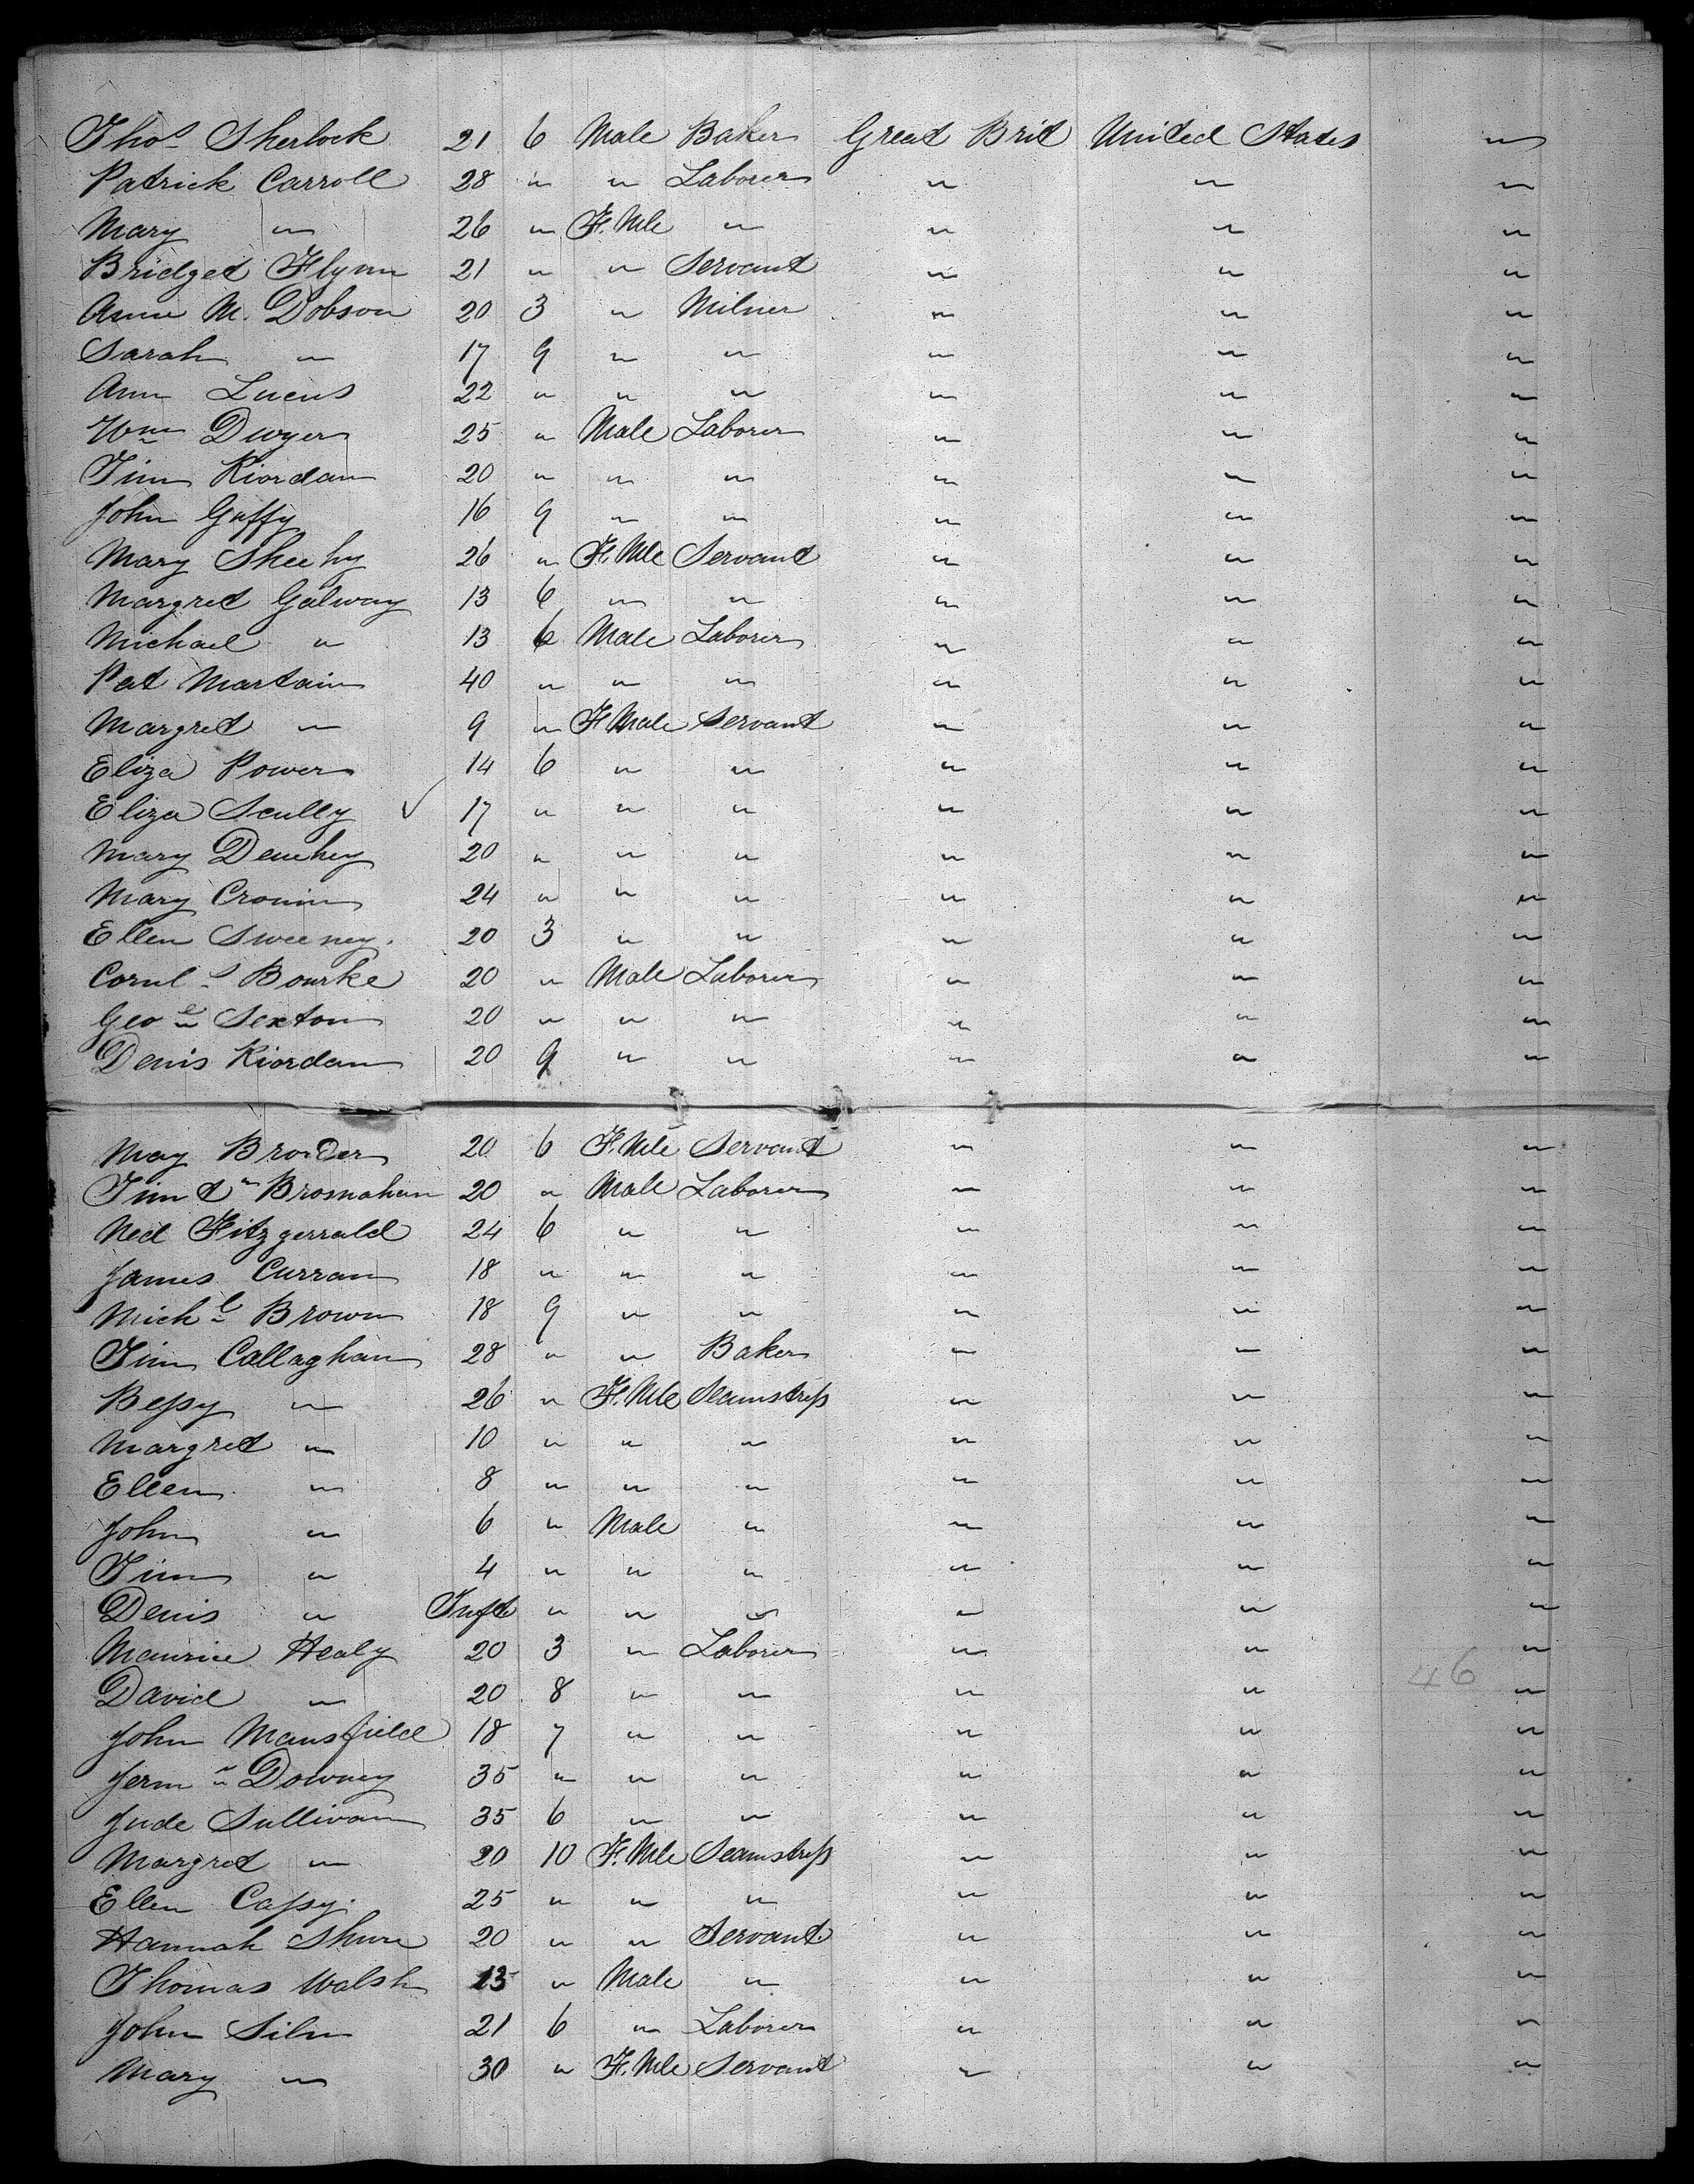 Thos Sherlock 21 6 Male Baker Great Brit United States "
Patrick Carroll 28 " " Laborer " " "
Mary " 26 " F.Mle " " " "
Bridget Flynn 21 " " Servant " " "
Annie M. Dobson 20 3 " Milner " " "
Sarah " 17 9 " " " " "
Ann Lucus 22 " " " " " "
Wm Dwyer 25 " Male Laborer " " "
Tim Riordan 20 " " " " " "
John Guffy 16 9 " " " " "
Mary Sheehy 26 " F.Mle Servant " " "
Margret Galway 13 6 " " " " "
Michael " 13 6 Male Laborer " " "
Pat Martain 40 " " " " " "
Margret " 9 " F Male Servant " " "
Eliza Power 14 6 " " " " "
Eliza Scully ✓ 17 " " " " " "
Mary Denehey 20 " " " " " "
Mary Cronin 24 " " " " " "
Ellen Sweeney. 20 3 " " " " "
Cornls Bourke 20 " Male Laborer " " "
Geoe Sexton 20 " " " " " "
Denis Riordan 20 9 " " " " "
May Broder 20 6 F.Mle Servant " " "
Timt Brosnahan 20 " Male Laborer " " "
Ned Fitzgerrald 24 6 " " " " "
James Curran 18 " " " " " "
Michl Brown 18 9 " " " " "
Tim Callaghan 28 " " Baker " " "
Bessy " 26 " F.Mle Seamstress " " "
Margret " 10 " " " " " "
Ellen " 8 " " " " " "
John " 6 " Male " " " "
Tim " 4 " " " " " "
Denis " Inft " " " " " "
Maurice Healy 20 3 " Laborer " " "
David " 20 8 " " " " 46 "
John Mansfield 18 7 " " " " "
Jermh Downey 35 " " " " " "
Jude Sullivan 35 6 " " " " "
Margret " 20 10 F.Mle Seamstress " " "
Ellen Cassy. 25 " " " " " "
Hannah 20 " " Servant " " "
Thomas Walsh 13 " Male " " " "
John Siln 21 6 " Laborer " " "
Mary " 30 " F.Mle Servant " " "